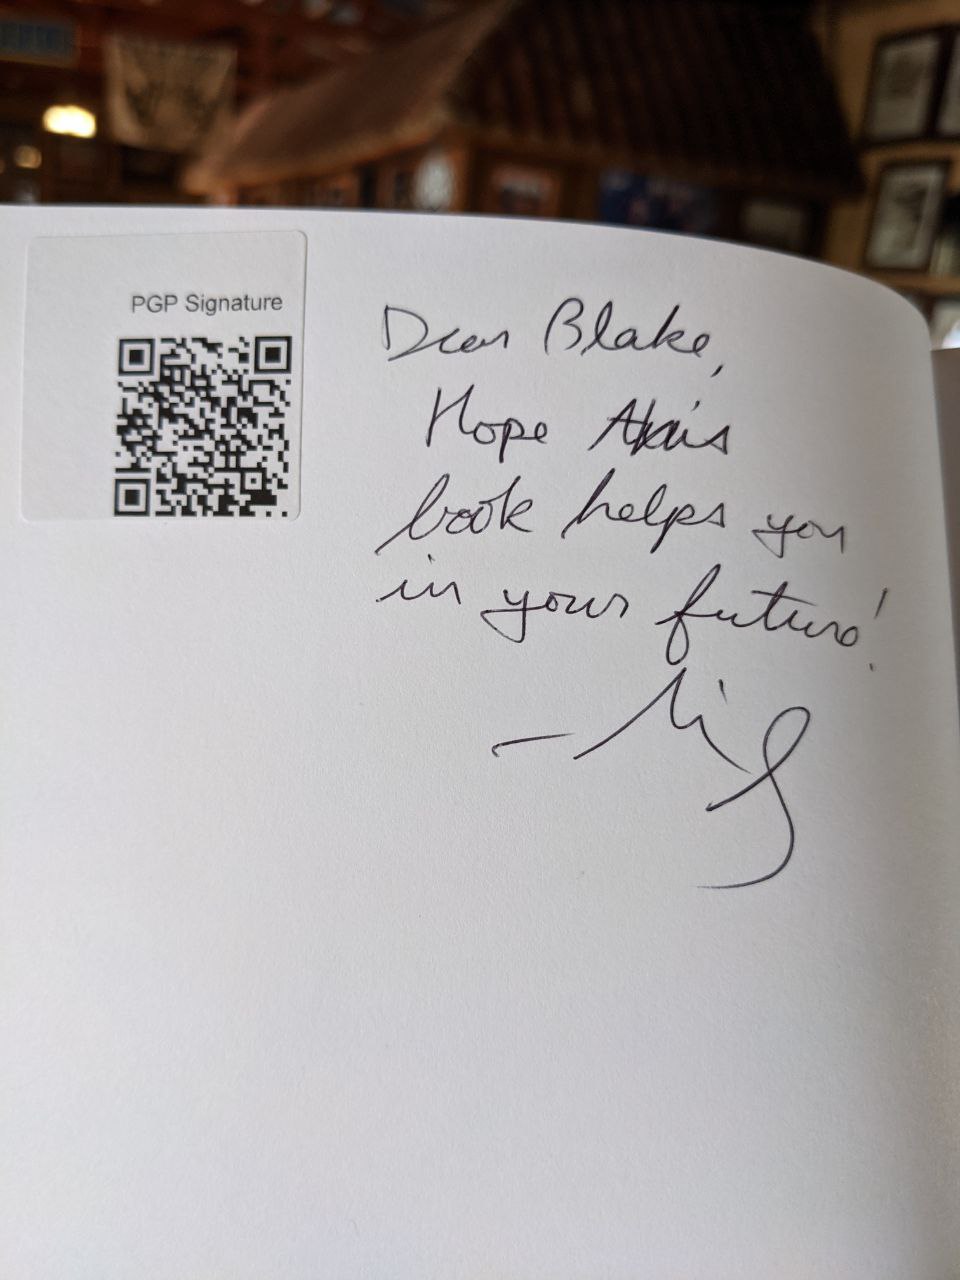 PGP Signature
Dear Blake,
Hope this
book helps you
in your future!